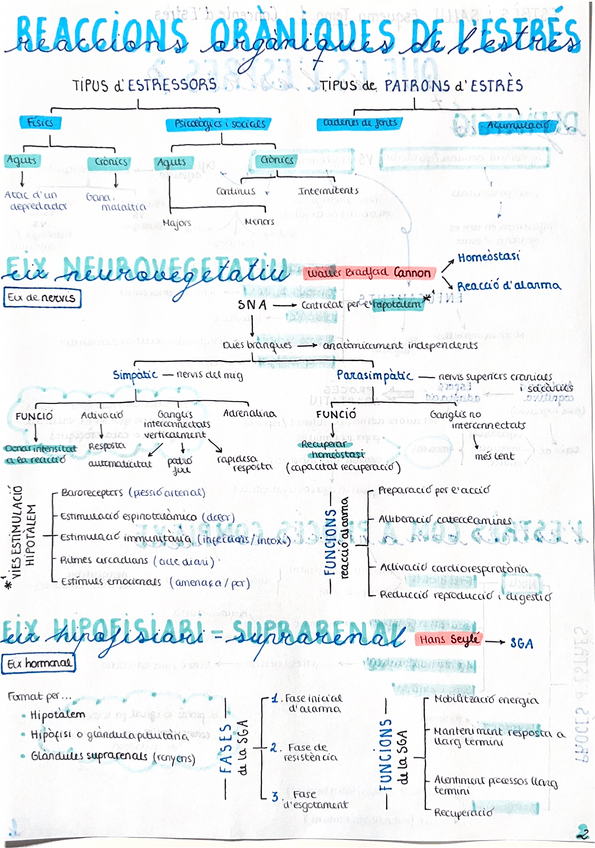 REACCIONS ORGÀNIQUES DE L'ESTRÉS
reaccions orgàniques de l'estrés
TIPUS d'ESTRESSORS
TIPUS de PATRONS d'ESTRÈS
Físics
Psicològics i socials
Cadenes de fonts
Acumulació
Aguts
Crònics
Aguts
Crònics
Atac d'un
depredador
Gana,
malaltia
Continus
Intermitents
Majors
Menors
EIX NEUROVEGETATIU
eix neurovegetatiu
Walter Bradford Cannon
Homeòstasi
Reacció d'alarma
Eix de nervis
SNA
Controlat per l'Hipotàlem *1
Dues branques
anatòmicament independents
Simpàtic — nervis del mig
Parasimpàtic — nervis superiors cranials
i sacàries
FUNCIÓ
Activació
Ganglis
interconnectats
verticalment
Adrenalina
FUNCIÓ
Ganglis no
interconnectats
Donar intensitat
a la reacció
Resposta
automaticitat
patró
fix
rapidesa
resposta
Recuperar
homeòstasi
(capacitat recuperació)
més lent
*1 VIES ESTIMULACIÓ
HIPOTÀLEM
Baroreceptors (pessió arterial)
Estimulació espinotalàmica (dolor)
Estimulació immunitària (infeccions / intoxi)
Ritmes circadians (cicle diari)
Estímuls emocionals (amenaça / por)
FUNCIONS
reacció alarma
Preparació per l'acció
Alliberació catecolamines
Activació cardiorespiratòria
Reducció reproducció i digestió
EIX HIPOFISIARI - SUPRARENAL
eix hipofisiari - suprarenal
Hans Seyle
SGA
Eix hormonal
Format per...
• Hipotàlem
• Hipòfisi o glàndula pituitària
• Glàndules suprarenals (ronyons)
FASES
de la SGA
1. Fase inicial
d'alarma
2. Fase de
resistència
3. Fase
d'esgotament
FUNCIONS
de la SGA
Mobilització energia
Manteniment resposta a
llarg termini
Alentiment processos llarg
termini
Recuperació
2